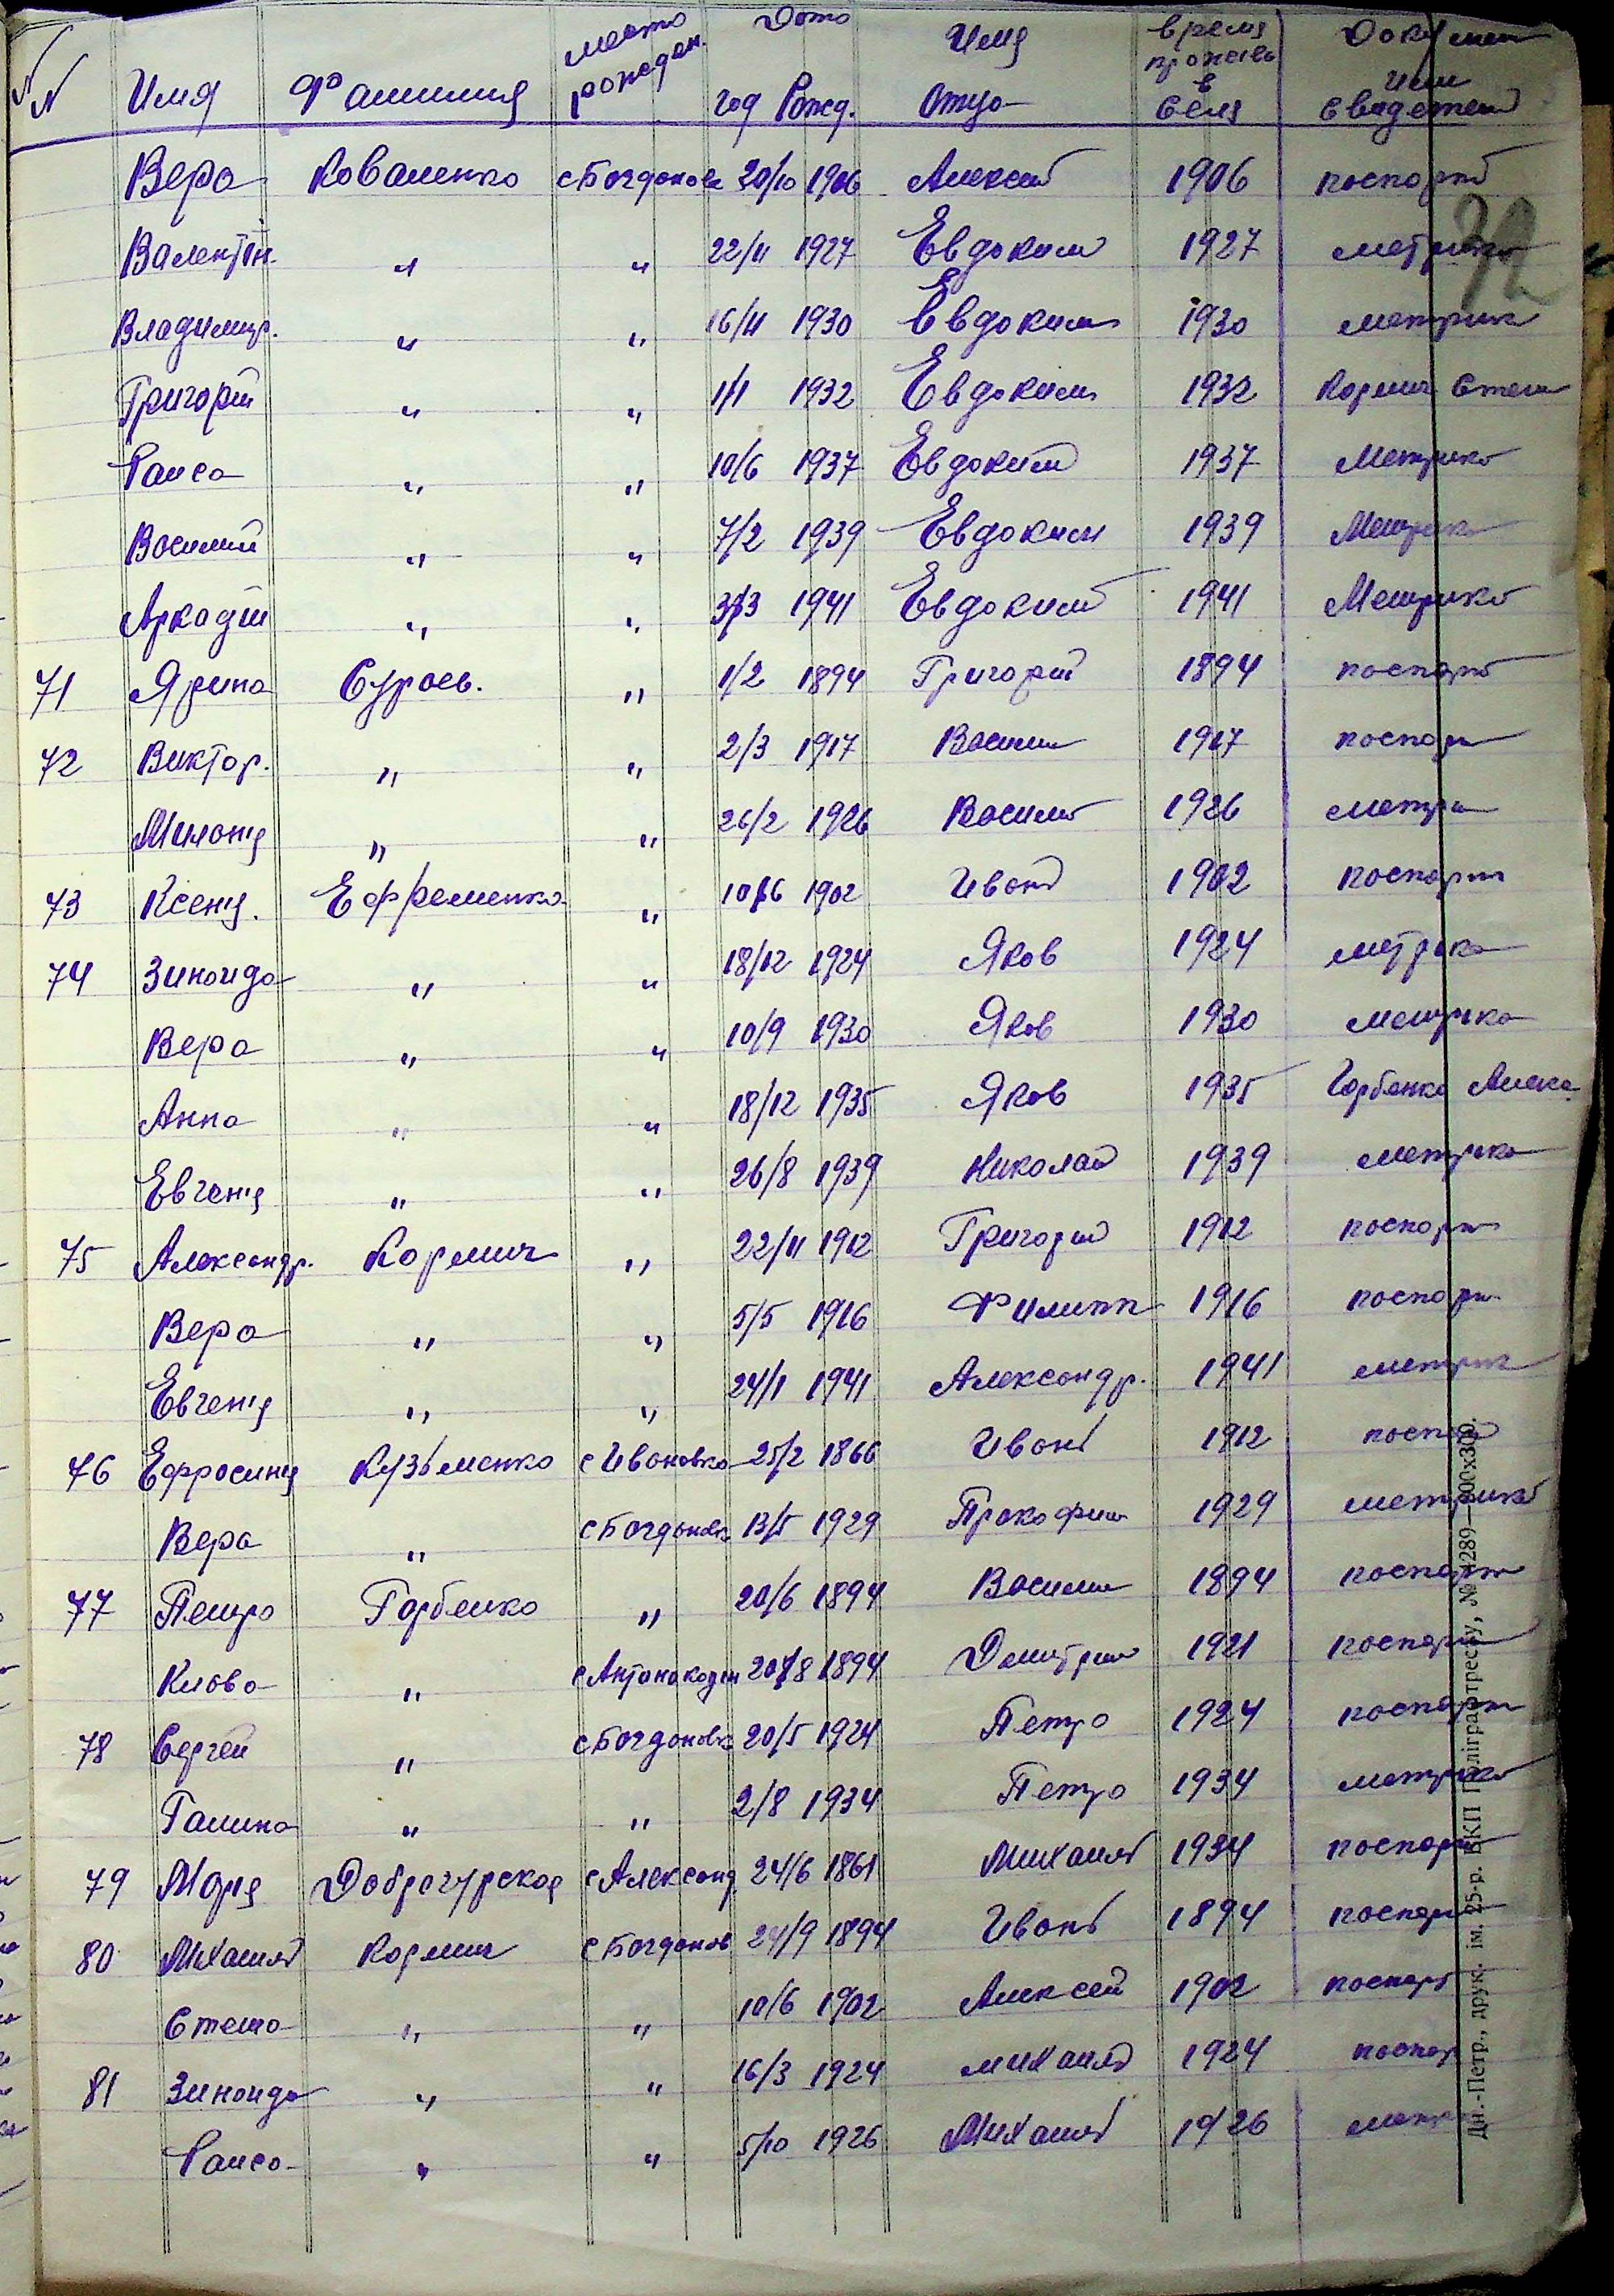 NN Имя Фамилия место рожден. Дата год Рожд. Имя Отца время прожив в селе Документ или свидетели
Вера Коваленко с Богдановк 20/10 1906 Алексей 1906 паспорт
32
Валентін. " " 22/11 1927 Евдоким 1927 метрика
Владимир. " " 16/11 1930 Евдоким 1930 метрик
Григорій " " 1/1 1932 Евдоким 1932 Кармич Степ
Раиса " " 10/6 1937 Евдоким 1937 Метрика
Василий " " 7/2 1939 Евдоким 1939 Метрика
Аркадій " " 3/3 1941 Евдоким 1941 Метрика
71 Ярина Сураев. " 1/2 1894 Григорий 1894 паспорт
72 Виктор. " " 2/3 1917 Васили 1917 паспор
Миланія " " 26/2 1926 Василь 1926 метри
73 Ксенія. Еффременко " 10/6 1902 Иван 1902 паспорт
74 Зинаида " " 18/12 1924 Яков 1924 метрика
Вера " " 10/9 1930 Яков 1930 метрика
Анна " " 18/12 1935 Яков 1935 Горбенко Алекс
Евгенія " " 26/8 1939 Николай 1939 метрика
75 Александр. Кармич " 22/11 1912 Григорий 1912 паспорт
Вера " " 5/5 1916 Филипп 1916 паспорт
Евгенія " " 24/1 1941 Александр. 1941 метрик
76 Ефросинія Кузьменко с Ивановка 25/2 1866 Иван 1912 паспор
Вера " с Богдановк 13/5 1929 Прокофий 1929 метрика
77 Петро Горбенко " 20/6 1894 Васили 1894 паспорт
Клава " 20/8 1894 Дмитрий 1921 паспорт
78 Сергей " с Богдановк 20/5 1924 Петро 1924 паспорт
Галина " " 2/8 1934 Петро 1934 метрика
79 Марія с Александ. 24/6 1861 Михаил 1934 паспорт
80 Михаил Кармич с Богданов 24/9 1894 Иван 1894 паспорт
Стеша " " 10/6 1902 Алексей 1902 паспорт
81 Зинаида " " 16/3 1924 михаил 1924 паспор
Раиса " " 5/10 1926 Михаил 1926 метр
Дн.-Петр., друк. ім. 25-р. ВКП Поліграфтресту, № 4289—800х300.